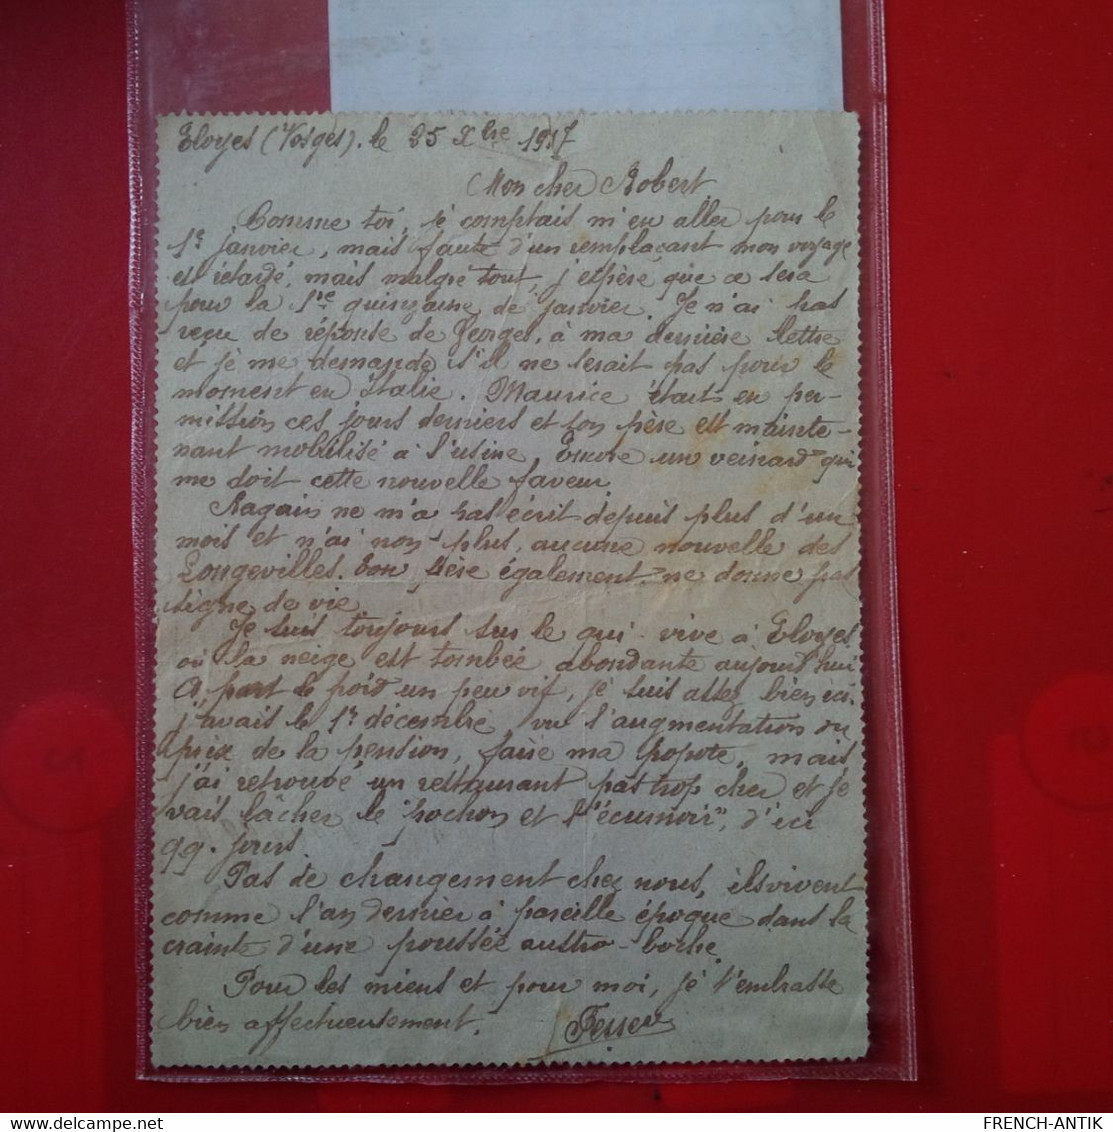 Eloyes (Vosges). le 25 Xbre 1917
Mon cher Robert
Comme toi, je comptais m'en aller pour le
1er janvier, mais faute d'un remplaçant mon voyage
est retardé, mais malgré tout, j'espère que ce sera
pour la 1re quinzaine de janvier. Je n'ai pas
reçu de réponse de Georges, à ma dernière lettre
et je me demande s'il ne serait pas pour le
moment en Italie. Maurice était en per-
mission ces jours derniers et son père est mainte-
nant mobilisé à l'usine. Encore un veinard qui
me doit cette nouvelle faveur.
Ragain ne m'a pas écrit depuis plus d'un
mois et n'ai non plus, aucune nouvelle des
Longevilles. Ton père également ne donne pas
signe de vie.
Je suis toujours sur le qui-vive à Eloyes
où la neige est tombée abondante aujourd'hui
A part le froid un peu vif, je suis assez bien ici.
j'avais le 1er décembre vu l'augmentation du
prix de la pension, faire ma popote, mais
j'ai retrouvé un restaurant pas trop cher et je
vais lâcher le "pochon et l'"écumoir", d'ici
qq. jours
Pas de changement chez nous, ils vivent
comme l'an dernier à pareille époque dans la
crainte d'une poussée austro-boche.
Pour les miens et pour moi, je t'embrasse
bien affectueusement.
FRENCH-ANTIK